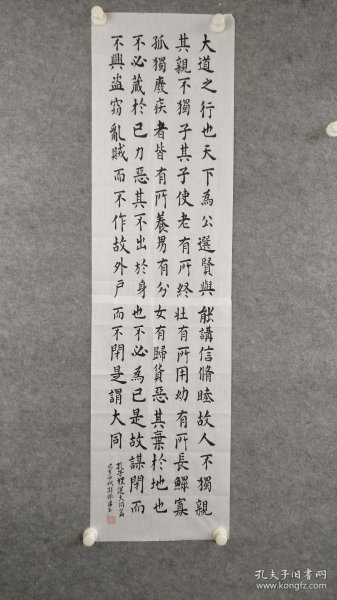 大道之行也天下為公選賢與能講信脩睦故人不獨親
其親不獨子其子使老有所終壯有所用幼有所長鰥寡
孤獨廢疾者皆有所養男有分女有歸貨惡其棄於地也
不必藏於己力惡其不出於身也不必為己是故謀閉而
不興盜窃亂賊而不作故外戶而不閉是謂大同
孔子禮運大同篇
孔夫子旧书网